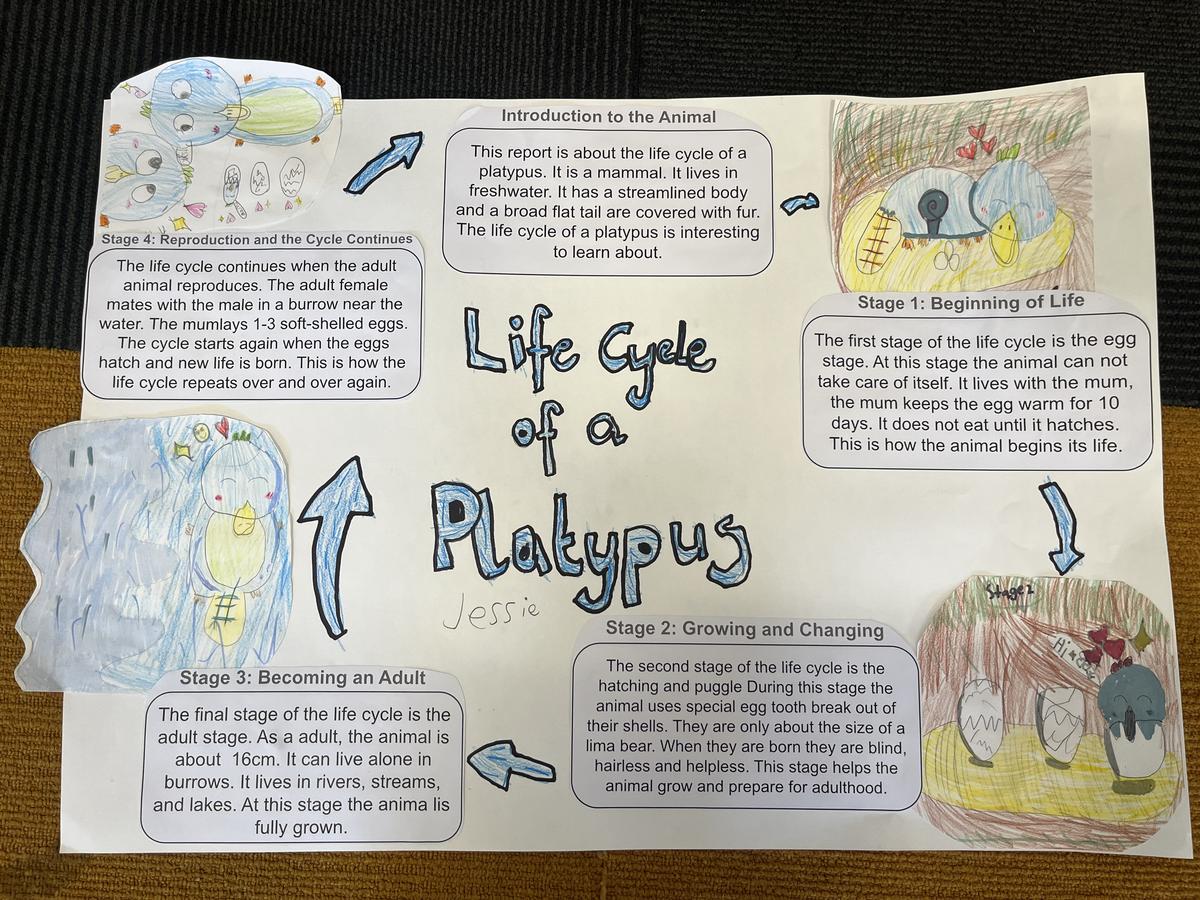 Life Cycle
of a
Platypus
Jessie
Introduction to the Animal
This report is about the life cycle of a
platypus. It is a mammal. It lives in
freshwater. It has a streamlined body
and a broad flat tail are covered with fur.
The life cycle of a platypus is interesting
to learn about.
Stage 1: Beginning of Life
The first stage of the life cycle is the egg
stage. At this stage the animal can not
take care of itself. It lives with the mum,
the mum keeps the egg warm for 10
days. It does not eat until it hatches.
This is how the animal begins its life.
Stage 2
Hi
Stage 2: Growing and Changing
The second stage of the life cycle is the
hatching and puggle During this stage the
animal uses special egg tooth break out of
their shells. They are only about the size of a
lima bear. When they are born they are blind,
hairless and helpless. This stage helps the
animal grow and prepare for adulthood.
Stage 3: Becoming an Adult
The final stage of the life cycle is the
adult stage. As a adult, the animal is
about 16cm. It can live alone in
burrows. It lives in rivers, streams,
and lakes. At this stage the anima lis
fully grown.
Stage 4: Reproduction and the Cycle Continues
The life cycle continues when the adult
animal reproduces. The adult female
mates with the male in a burrow near the
water. The mumlays 1-3 soft-shelled eggs.
The cycle starts again when the eggs
hatch and new life is born. This is how the
life cycle repeats over and over again.